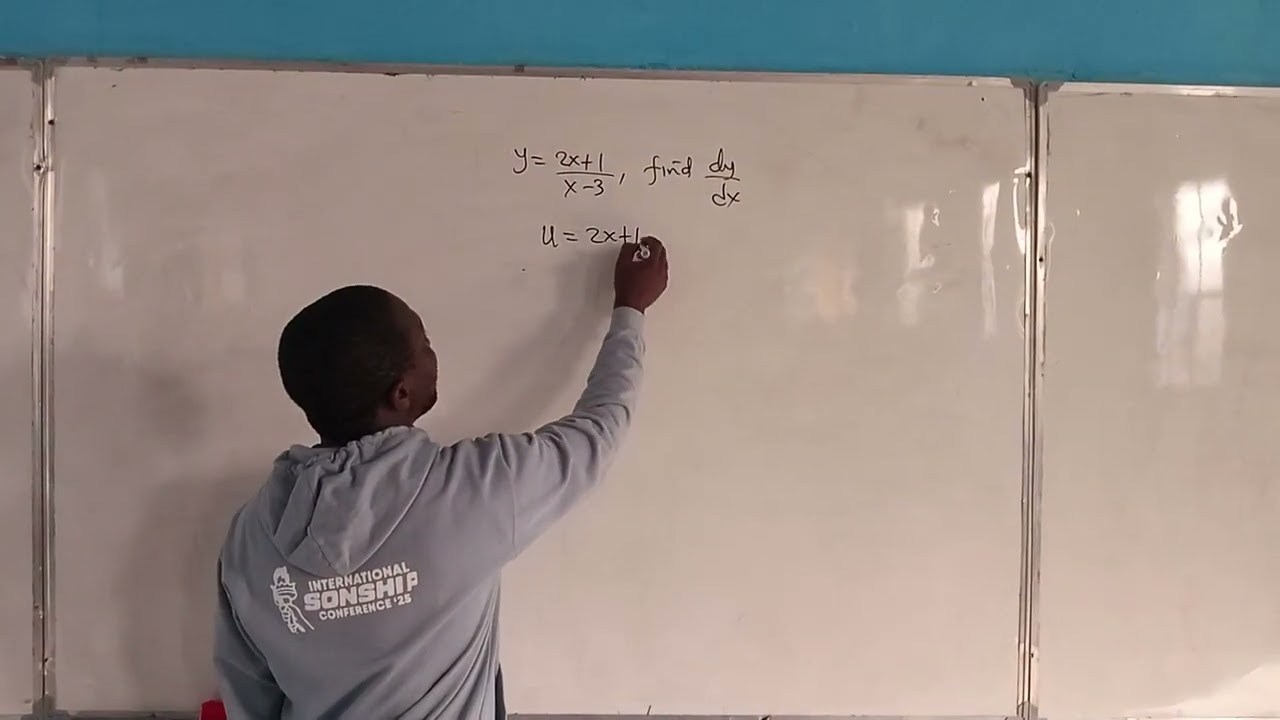 y = \frac{2x+1}{x-3}, find \frac{dy}{dx}
u = 2x+1
INTERNATIONAL
SONSHIP
CONFERENCE '25